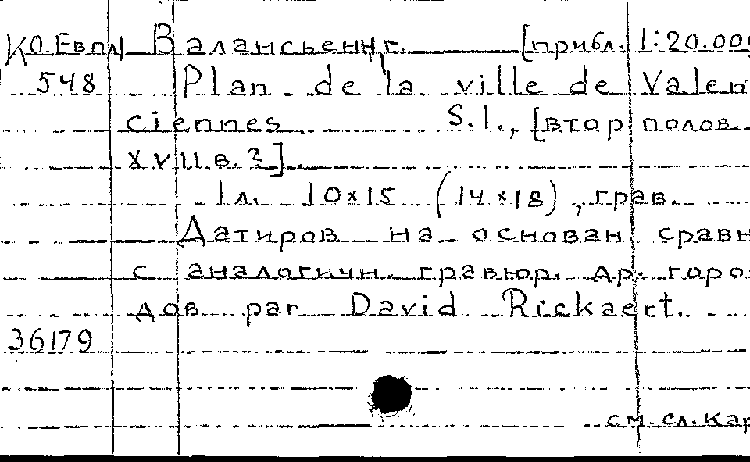 КО Евпл Валансьенн г. [прибл. 1:20.000
548 Plan de la ville de Valen
ciennes S.l., [втор полов
XVII в.?].
1 л. 10×15 (14×18), грав.
Датиров на основан сравн
с аналогичн. гравюр. др. горо
дов par David Rickaert.
36179
см. сл. кар